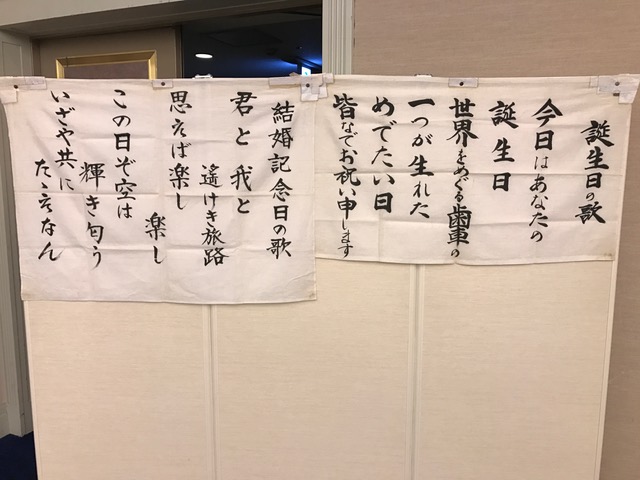 誕生日の歌
今日はあなたの
誕生日
世界をめぐる歯車の
一つが生れた
めでたい日
皆なでお祝い申します
結婚記念日の歌
君と我と
遙けき旅路
思えば楽し
楽し
この日ぞ空は
輝き匂う
いざや共に
たゝえなん